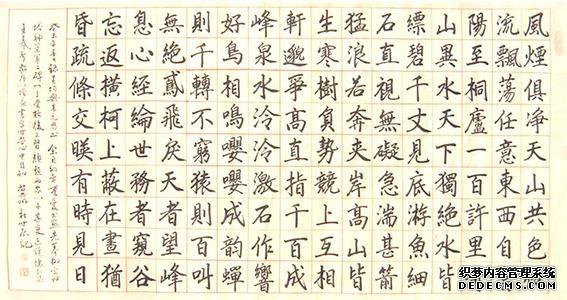 風煙俱净天山共色
流飄蕩任意東西自
陽至桐廬一百許里
山異水天下獨絕水皆
縹碧千丈見底游魚細
石直視無礙急湍甚箭
猛浪若奔夾岸高山皆
生寒樹負勢競上互相
軒邈爭高直指千百成
峰泉水泠泠激石作響
好鳥相鳴嚶嚶成韻蟬
則千轉不窮猿則百叫
無絕鳶飛戾天者望峰
息心經綸世務者窺谷
忘返橫柯上蔽在晝猶
昏疏條交映有時見日
织梦内容管理系统
DEDECMS.COM